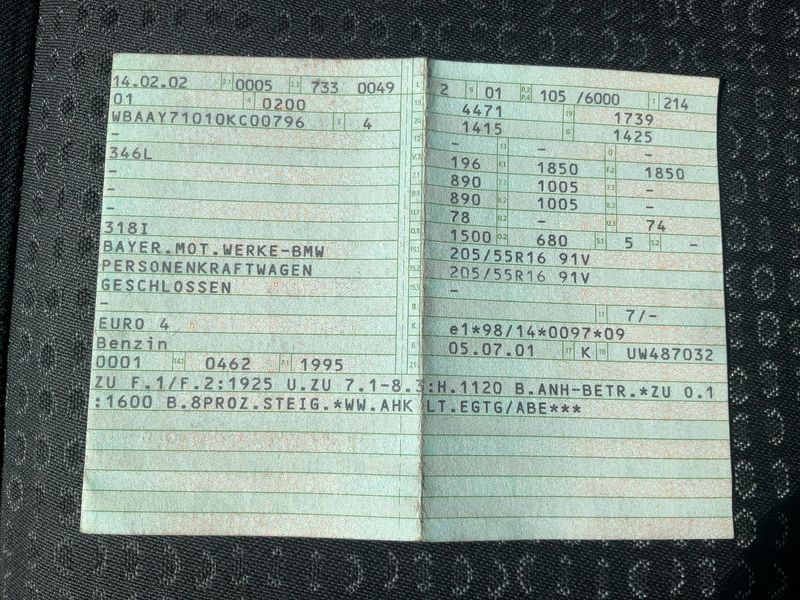 14.02.02 2.1 0005 2.2 733 0049
01 4 0200
WBAAY71010KC00796 3 4
-
346L
-
-
-
318I
BAYER.MOT.WERKE-BMW
PERSONENKRAFTWAGEN
GESCHLOSSEN
-
EURO 4
Benzin
0001 14.1 0462 P.1 1995
L 2 9 01 P.2 P.4 105 /6000 T 214
18 4471 19 1739
20 1415 G 1425
12 - 13 - Q -
V.7 196 F.1 1850 F.2 1850
7.1 890 7.2 1005 7.3 -
8.1 890 8.2 1005 8.3 -
U.1 78 U.2 - U.3 74
O.1 1500 O.2 680 S.1 5 S.2 -
15.1 205/55R16 91V
15.2 205/55R16 91V
15.3 -
R 11 7/-
K e1*98/14*0097*09
6 05.07.01 17 K 16 UW487032
21
ZU F.1/F.2:1925 U.ZU 7.1-8.3:H.1120 B.ANH-BETR.*ZU O.1
:1600 B.8PROZ.STEIG.*WW.AHK LT.EGTG/ABE***